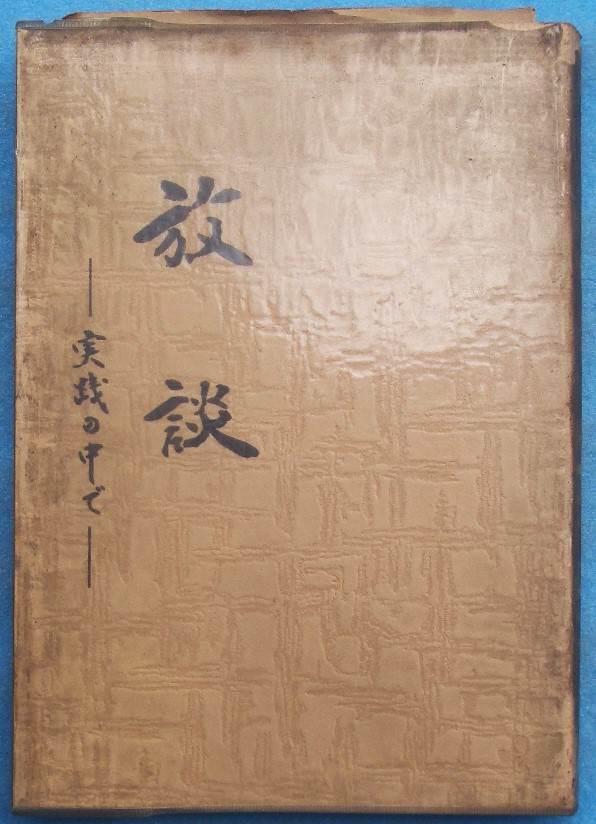 放談
―実践の中で―